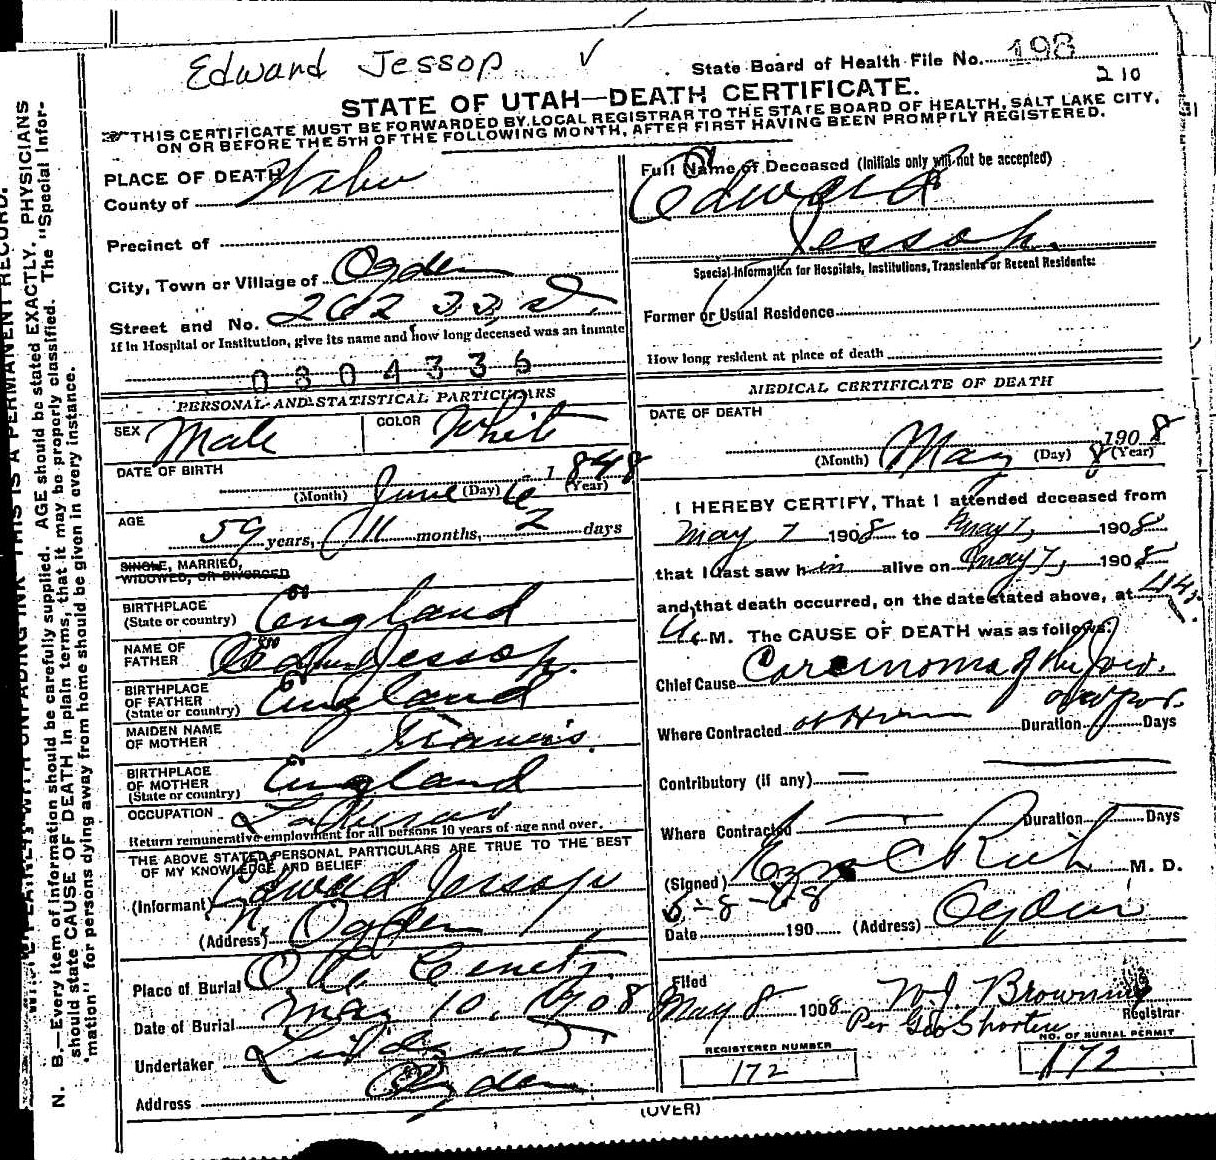 Edward Jessop
State Board of Health File No. 198
210
STATE OF UTAH—DEATH CERTIFICATE.
THIS CERTIFICATE MUST BE FORWARDED BY LOCAL REGISTRAR TO THE STATE BOARD OF HEALTH, SALT LAKE CITY,
ON OR BEFORE THE 5TH OF THE FOLLOWING MONTH, AFTER FIRST HAVING BEEN PROMPTLY REGISTERED.
PLACE OF DEATH
County of Weber
Precinct of
City, Town or Village of Ogden
Street and No. 262 33, st.
If in Hospital or Institution, give its name and how long deceased was an inmate
0804336
PERSONAL AND STATISTICAL PARTICULARS
SEX Male COLOR White
DATE OF BIRTH
(Month) June (Day) 6 1848 (Year)
AGE
59 years, 11 months, 2 days
SINGLE, MARRIED,
WIDOWED, OR DIVORCED
BIRTHPLACE
(State or country) England
NAME OF
FATHER Jessop.
BIRTHPLACE
OF FATHER
(State or country) England
MAIDEN NAME
OF MOTHER Francis.
BIRTHPLACE
OF MOTHER
(State or country) England
OCCUPATION
Return remunerative employment for all persons 10 years of age and over.
THE ABOVE STATED PERSONAL PARTICULARS ARE TRUE TO THE BEST
OF MY KNOWLEDGE AND BELIEF
(Informant) Edward Jessop
(Address) N. Ogden
Place of Burial
Date of Burial May 10, 1908
Undertaker
Address Ogden
Full Name of Deceased (Initials only will not be accepted)
Edward
Jessop.
Special Information for Hospitals, Institutions, Transients or Recent Residents:
Former or Usual Residence
How long resident at place of death
MEDICAL CERTIFICATE OF DEATH
DATE OF DEATH
(Month) May (Day) 8 1908 (Year)
I HEREBY CERTIFY, That I attended deceased from
May 7 1908 to May 7, 1908
that I last saw him alive on May 7, 1908
and that death occurred, on the date stated above, at
M. The CAUSE OF DEATH was as follows:
Chief Cause Carcinoma of the
Where Contracted at Home Duration Days
Contributory (if any) —
Where Contracted — Duration Days
(Signed) Ezra C Rich M. D.
Date 5-8-08 190 (Address) Ogden
Filed
May 8 1908 W. J. Browning
Registrar
Per Geo Shorten
REGISTERED NUMBER
172
NO. OF BURIAL PERMIT
172
(OVER)
N. B.—Every item of information should be carefully supplied. AGE should be stated EXACTLY. PHYSICIANS
should state CAUSE OF DEATH in plain terms, that it may be properly classified. The "Special Infor-
mation" for persons dying away from home should be given in every instance.